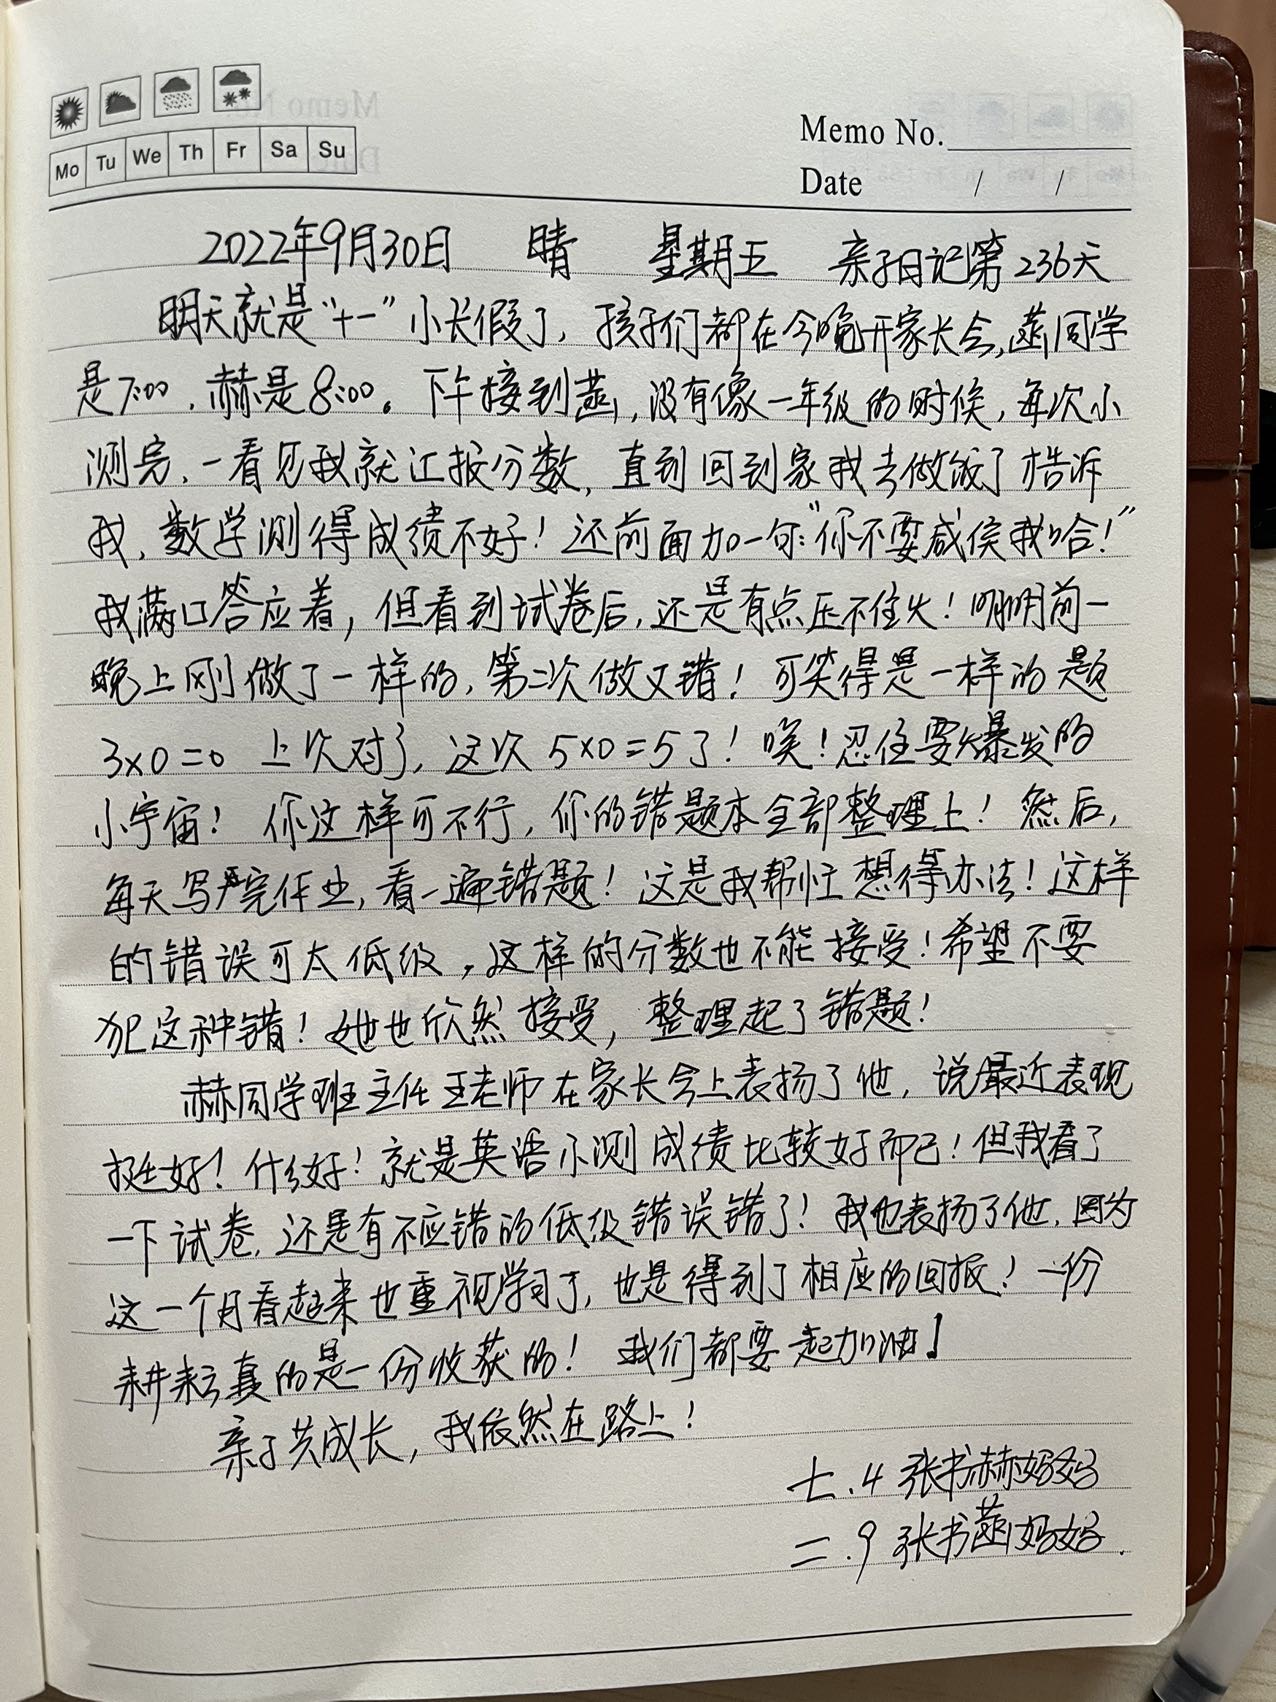 Mo Tu We Th Fr Sa Su
Memo No.
Date / /
2022年9月30日 晴 星期五 亲子日记第236天
明天就是“十一”小长假了，孩子们都在今晚开家长会，菡同学
是7:00，赫是8:00。下午接到菡，没有像一年级的时候，每次小
测完，一看见我就让报分数，直到回到家我去做饭了才告诉
我，数学测得成绩不好！还前面加一句：“你不要威侯我哈！”
我满口答应着，但看到试卷后，还是有点压不住火！明明前一
晚上刚做了一样的，第二次做又错！可笑得是一样的题
3×0=0 上次对了，这次5×0=5了！唉！忍住要爆发的
小宇宙！你这样可不行，你的错题本全部整理上！然后，
每天写完作业，看一遍错题！这是我帮忙想得办法！这样
的错误可太低级，这样的分数也不能接受！希望不要
犯这种错！她也欣然接受，整理起了错题！
赫同学班主任王老师在家长会上表扬了他，说最近表现
挺好！什么好！就是英语小测成绩比较好而已！但我看了
一下试卷，还是有不应错的低级错误错了！我也表扬了他，因为
这一个月看起来也重视学习了，也是得到了相应的回报！一份
耕耘真的是一份收获的！我们都要一起加油！
亲子共成长，我依然在路上！
七.4 张书赫妈妈
二.9 张书菡妈妈.